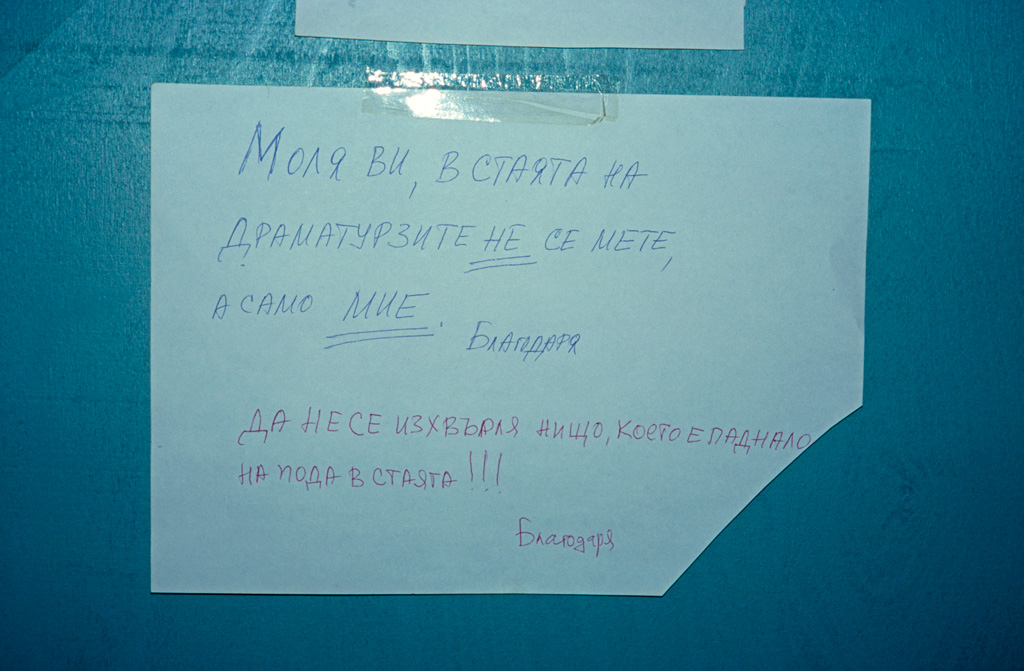 Моля ви, в стаята на
драматурзите не се мете,
а само мие.
Благодаря
Да не се изхвърля нищо, което е паднало
на пода в стаята!!!
Благодаря